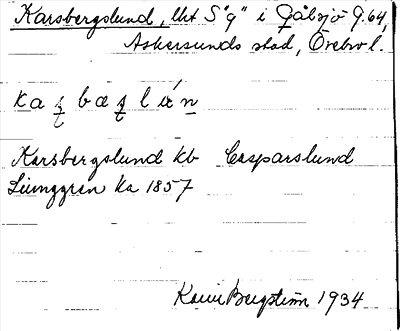 Karsbergslund, lht S"g" i Gålsjö G.64,
Askersunds stad, Örebro l.
Karsbergslund kb Casparslund
Ljunggren Ka 1857
Karin Bergström 1934